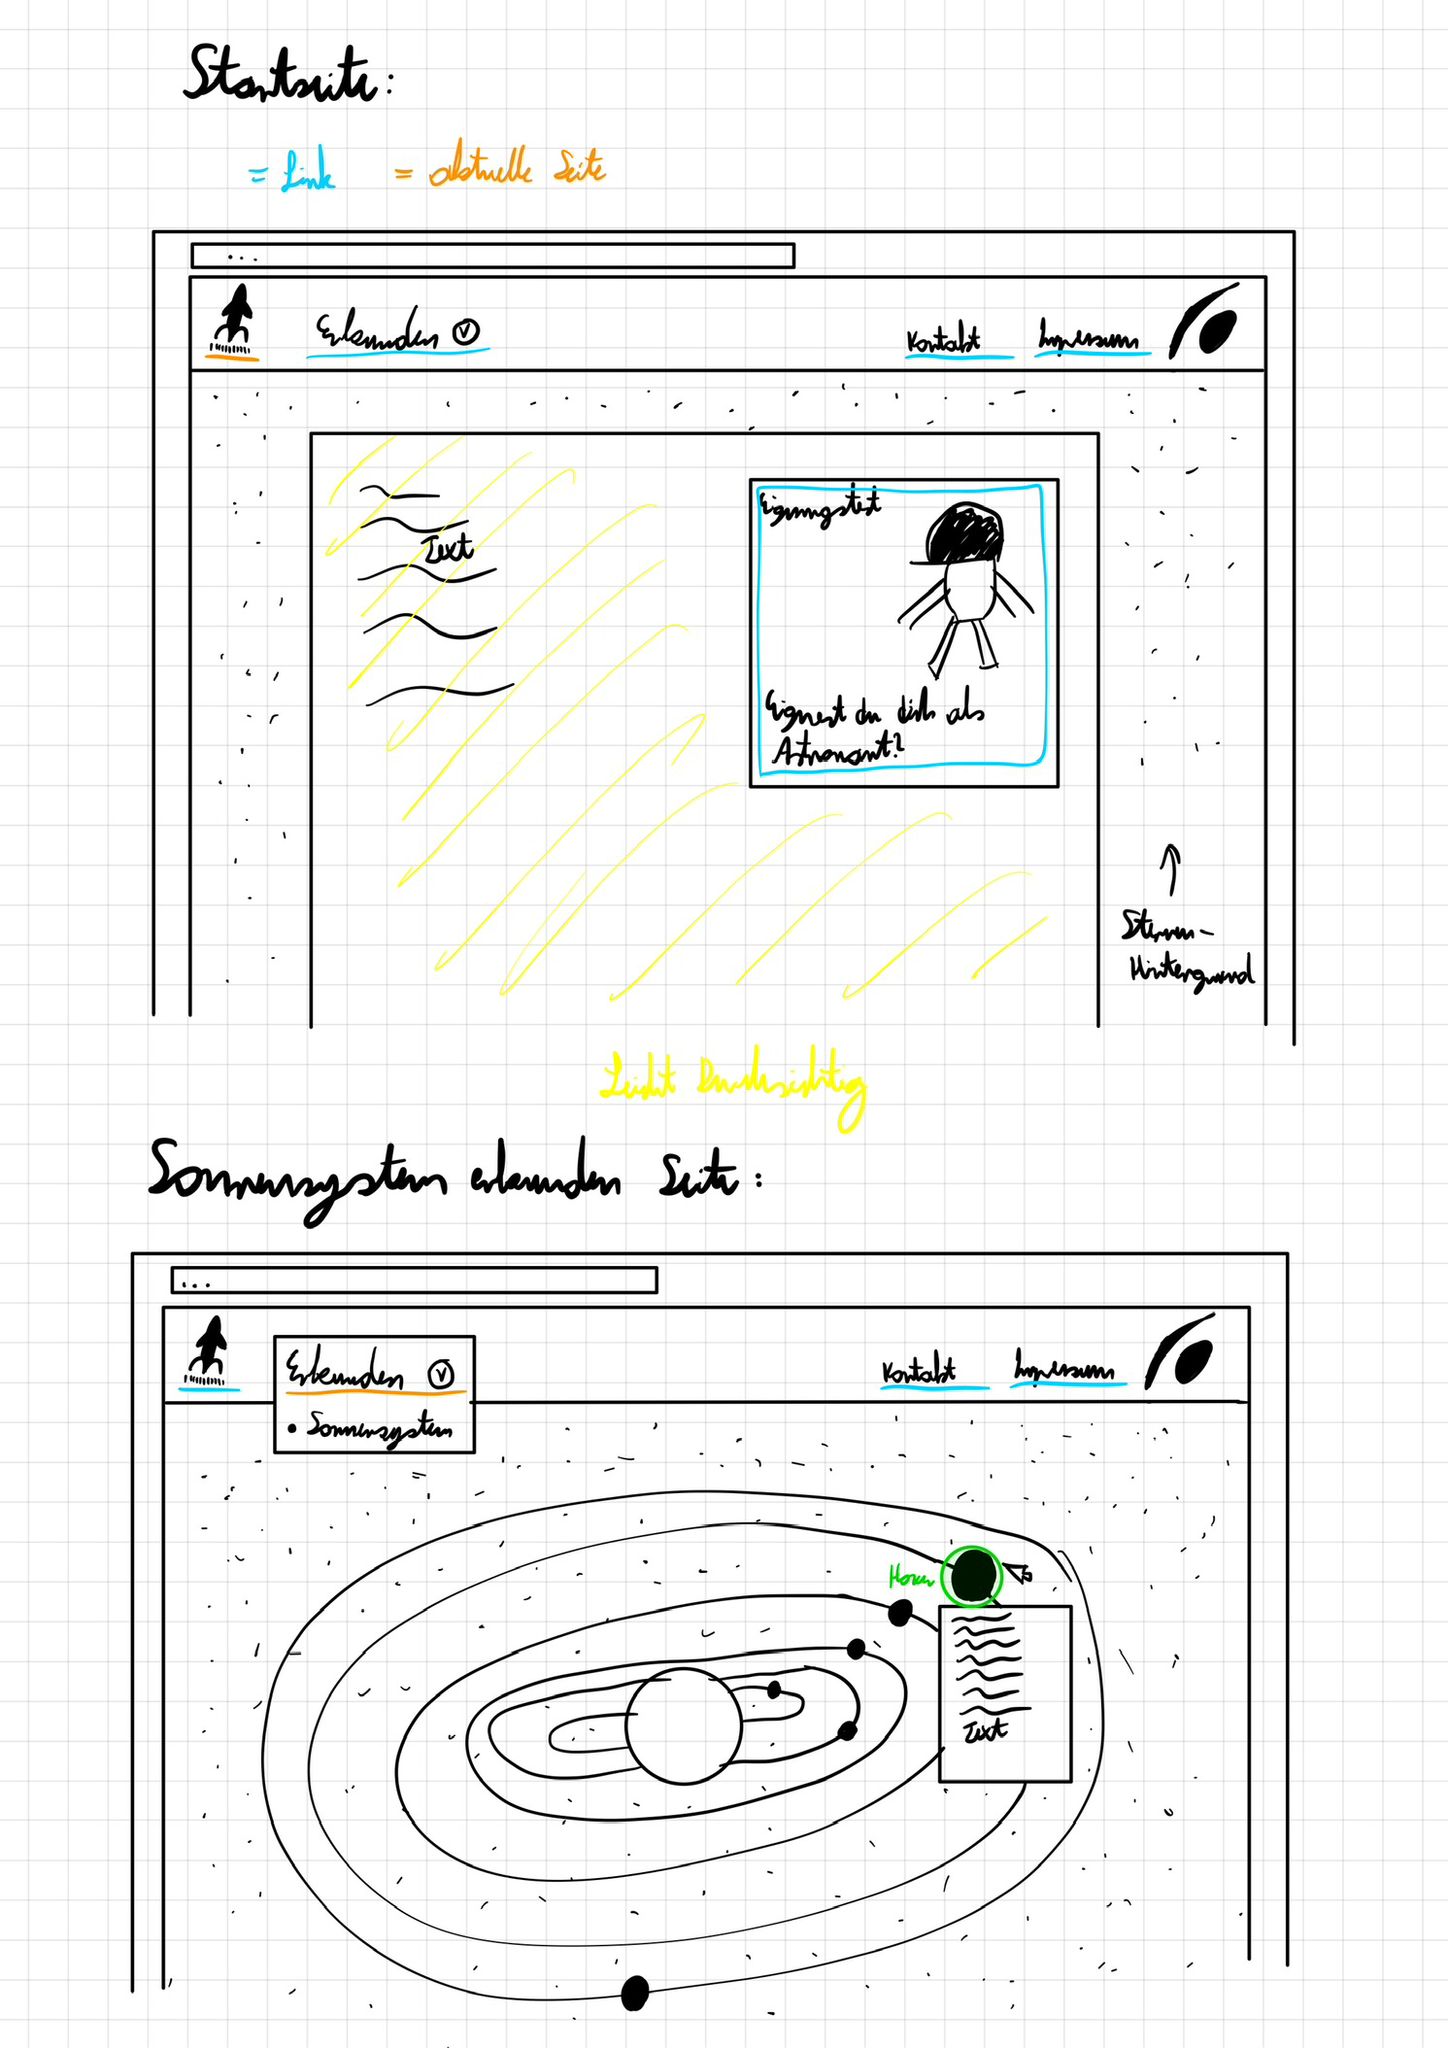 Startseite:
= Link = aktuelle Seite
...
Erkunden v Kontakt Impressum
Text
Eignungstest
Eignest du dich als
Astronaut?
Sternen-
Hintergrund
Leicht Durchsichtig
Sonnensystem erkunden Seite:
...
Erkunden v Kontakt Impressum
• Sonnensystem
Hover
Text